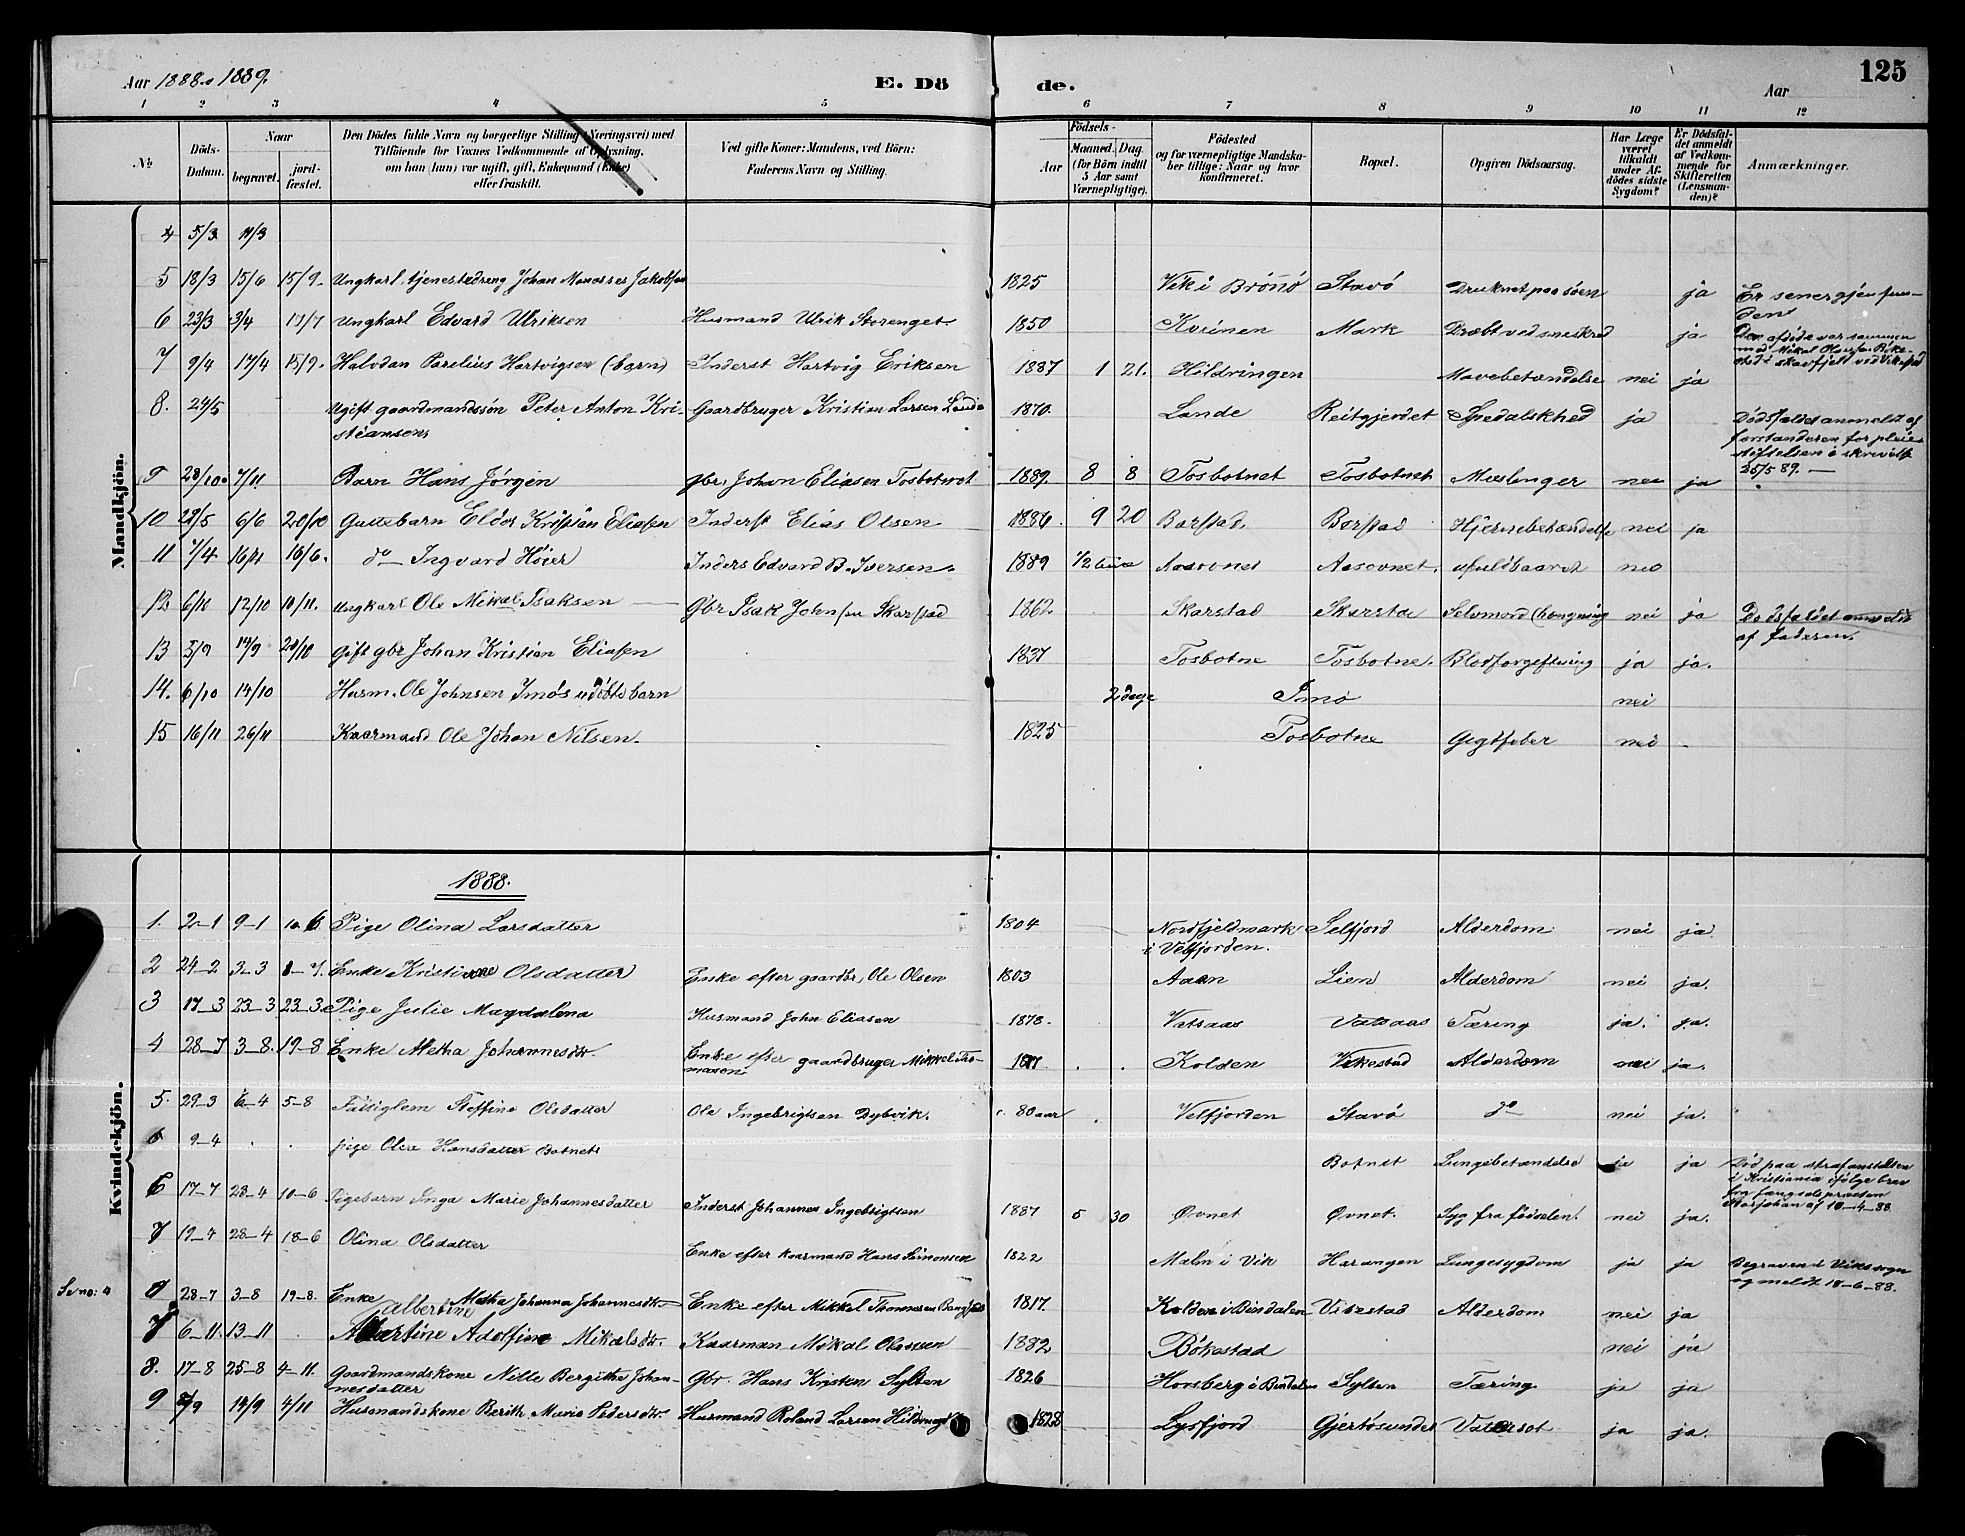 Aar 1888 o 1889.
E. Dö
de.
Aar
125
1 2 3 4 5 6 7 8 9 10 11 12
No
Döds-Datum.
Naar
begravet.
jord-fæstet.
Den Dödes fulde Navn og borgerlige Stilling (Næringsvei) med
Tilföiende for Voxnes Vedkommende af Oplysning,
om han (hun) var ugift, gift, Enkemand (Enke)
eller fraskilt.
Ved gifte Koner: Mandens, ved Börn:
Faderens Navn og Stilling.
Födsels-
Aar
Maaned. Dag.
(for Börn indtil
5 Aar samt
Værnepligtige).
Födested
og for værnepligtige Mandska-
ber tillige: Naar og hvor
konfirmeret.
Bopæl.
Opgiven Dödsaarsag.
Har Læge
været
tilkaldt
under Af-
dödes sidste
Sygdom?
Er Dödsfal-
det anmeldt
af Vedkom-
mende for
Skifteretten
(Lensman-
den)?
Anmærkninger.
Mandkjön.
4 5/3 11/3
5 18/3 15/6 15/9 Ungkarl, tjenestedreng Johan Manasses Jakobsen 1825 Vik i Brönö Stavö Druknet paa söen ja Er senere gjenfun-
den
6 23/3 3/4 17/7 Ungkarl Edvard Ulriksen Husmand Ulrik Storenget 1850 Kvinen Mark Dræbt ved sneskred ja Den afdöde var sammen
med Mikal Olausen Böke-
stad i skavfjell ved Vikestad
7 9/4 17/4 15/9. Halvdan Parelius Hartvigsen (barn) Inderst Hartvig Eriksen 1887 1 21. Hildringen Mavebetændelse nei ja
8. 24/5 Ugift gaardmandssön Peter Anton Kri-
stiansen Gaardbruger Kristian Larsen Lande 1870. Lande Reitgjerdet Spedalskhed ja Dödsfaldet anmeldt af
forstanderen for pleie-
stiftelsen i skrivelse
25/5 89.
9 28/10 7/11 Barn Hans Jörgen gbr. Johan Eliasen Tosbotnet 1889. 8 8 Tosbotnet Tosbotnet Meslinger nei ja
10 29/5 6/6 20/10 Guttebarn Eldor Kristian Eliasen Inderst Elias Olsen 1886. 9 20 Barstad Borstad Hjernebetændelse nei ja
11 7/4 16/4 16/6. do Ingvard Höier Inders Edvard B. Iversen 1889 1/2 time Aasovnet ufuldbaaret nei
12 6/10 12/10 10/11. Ungkarl Ole Mikal Isaksen Gbr Isak Johnsen Skarstad 1862. Skarstad Skarsta Selvmord (hængning nei ja Dödsfaldet anmeldt
af faderen.
13 5/9 14/9 20/10 Gift gbr Johan Kristian Eliasen 1837 Tosbotne Tosbotne. Blodforgiftning ja ja.
14. 6/10 14/10 Husm. Ole Johnsen Imös udöbte barn 2 dage Imö nei
15 16/11 26/11 Kaarmand Ole Johan Nilsen. 1825 Tosbotne Gigtfeber nei
Kvindekjön.
1888.
1. 2-1 9-1 10.6. Pige Olina Larsdatter 1804 Nordfjeldmark
i Velfjorden. Selfjord Alderdom nei ja.
2 24-2 3-3 Enke Kristianne Olsdatter Enke efter gaardbr, Ole Olsen 1803 Aaen Lien Alderdom nei ja.
3 17-3 23-3 23-3. Pige Julie Magdalena Husmand John Eliasen 1878. Vatsaas Vatsaas Tæring ja. ja.
4 28-7 3-8. 19-8 Enke Metha Johannesdtr. Enke efter gaardbruger Mikkel Tho-
masen 1817. Kolden Vikestad Alderdom nei ja.
5. 29-3 6-4 5-8 Fattiglem Steffine Olsdatter Ole Ingebrigtsen Dybvik. 80 aar Velfjorden Stavö do nei ja.
6 9-4 pige Olea Hansdatter Botnet Botnet Lungebetændelse ja ja Död paa strafanstalten
i Kristiania ifölge brev
fra fængselspræsten
af 10-4-88.
6 17-7 28-4 10-6 Pigebarn Inga Marie Johannesdatter Inderst Johannes Ingebrigtsen 1887 5 30 Övnet Övnet. Syg fra födselen. nei ja.
7 19-4 28-4 18-6 Olina Olsdatter Enke efter kaarmand Hans Simonsen 1822 Malm i Vik Harangen Lungesygdom ja ja Begraven i Viks sogn
og meldt 18-6-88.
Se no: 4 28-7 3-8 19-8. Enke Metha Johanna Johannesdtr. Enke efter Mikkel Thomesen 1817. Kolden i Bindalen Vikestad Alderdom nei ja
7 6-11. 13-11 Albertine
Adolfine Mikalsdtr. Kaarman Mikal Olaussen 1882 Bökestad nei ja
8. 17-8 25-8 4-11. Gaardmandskone Nille Bergitha Johan-
nesdatter Gbr. Hans Kristen Sylten 1826 Horsberg i Bindalen Sylten Tæring ja ja
9 8/9 14/9 4/11 Husmandskone Berith Maria Pedersdtr. Husmand Roland Larsen 1828 Lysfjord Gjertösundet Vatersot ja ja.